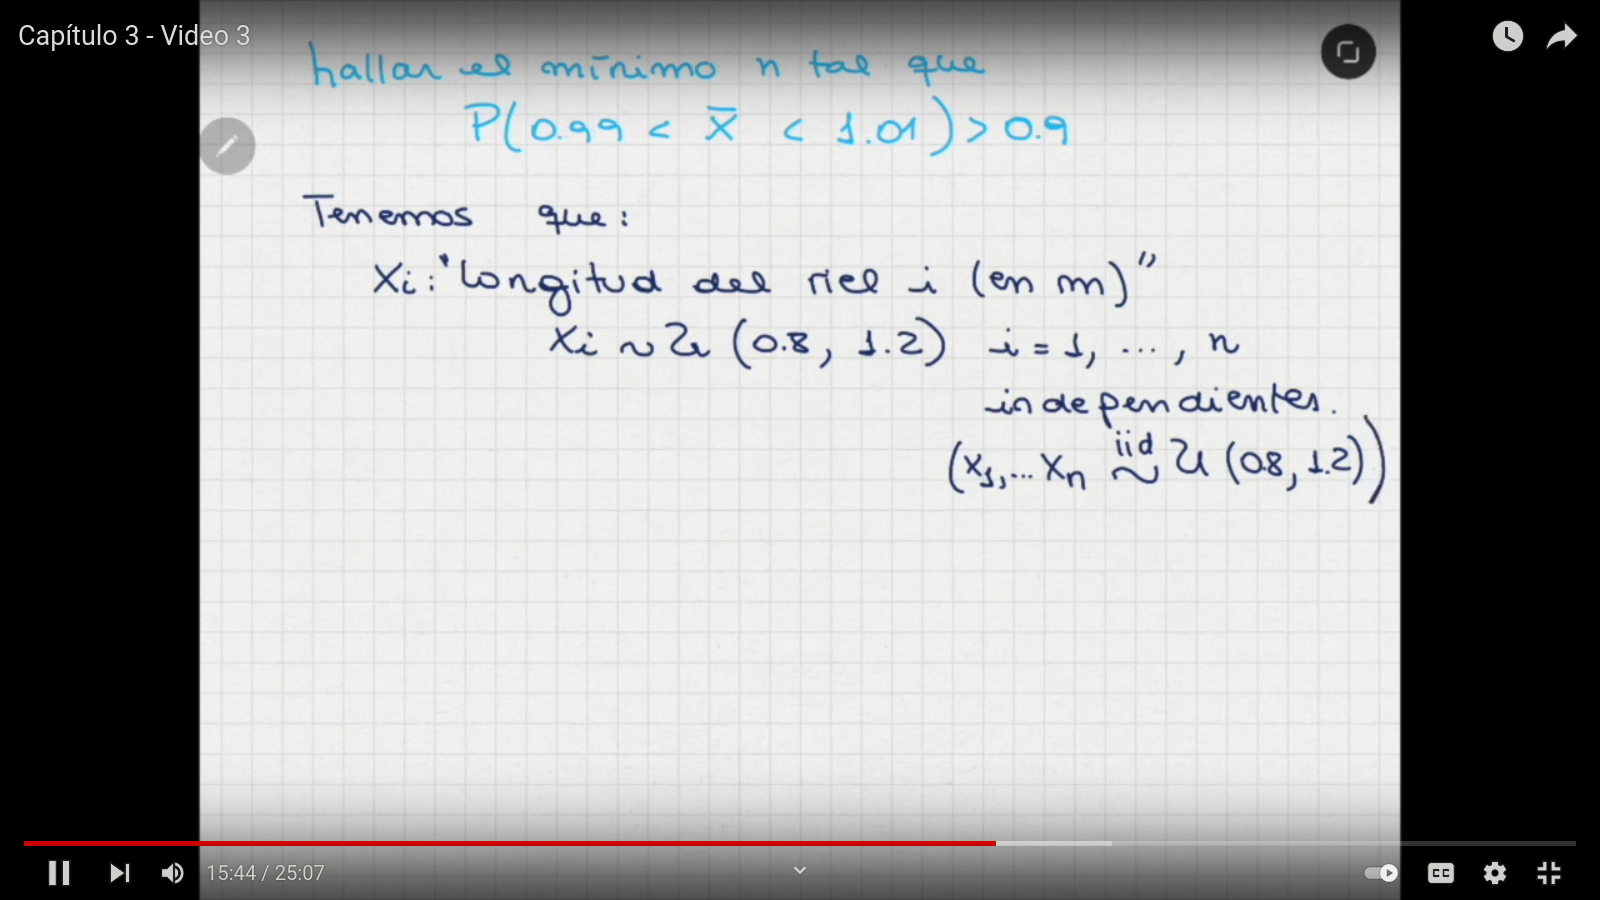 Capítulo 3 - Video 3
hallar el mínimo n tal que
P(0.99 < X̅ < 1.01) > 0.9
Tenemos que:
Xi: "Longitud del riel i (en m)"
Xi ~ U (0.8, 1.2) i = 1, ..., n
independientes.
(X1, ... Xn iid ~ U (0.8, 1.2))
15:44 / 25:07
CC